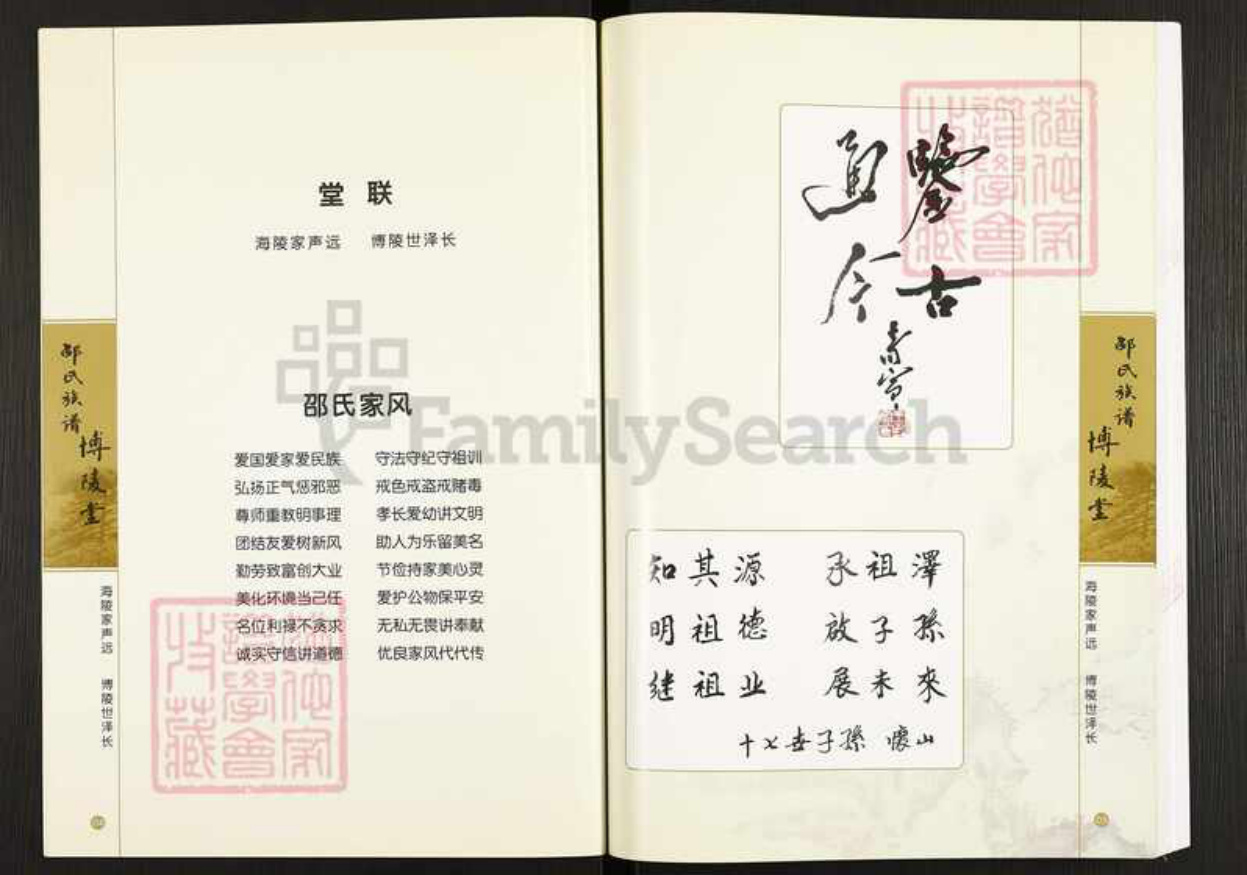 堂 联
海陵家声远 博陵世泽长
邵氏家风
爱国爱家爱民族 守法守纪守祖训
弘扬正气惩邪恶 戒色戒盗戒赌毒
尊师重教明事理 孝长爱幼讲文明
团结友爱树新风 助人为乐留美名
勤劳致富创大业 节俭持家美心灵
美化环境当己任 爱护公物保平安
名位利禄不贪求 无私无畏讲奉献
诚实守信讲道德 优良家风代代传
邵氏族谱
博陵堂
海陵家声远 博陵世泽长
鑒古
通今
知其源 承祖澤
明祖德 啟子孫
继祖业 展未來
十七世子孫 懷山
邵氏族谱
博陵堂
海陵家声远 博陵世泽长
FamilySearch
譜學會
收藏
譜學會
收藏